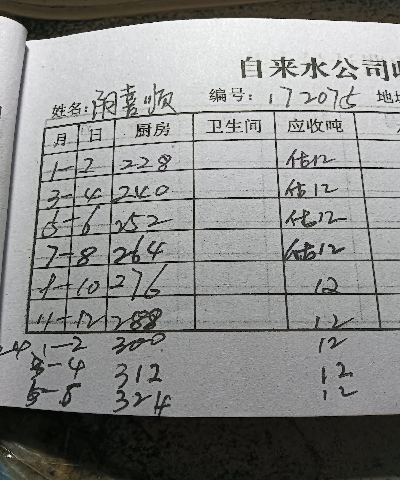 自来水公司
姓名: 喜顺 编号: 172075 地
月 日 厨房 卫生间 应收吨
1-2 228 估12
3-4 240 估12
5-6 252 估12
7-8 264 估12
9-10 276 12
11-12 288 12
24 1-2 300 12
3-4 312 12
5-6 324 12